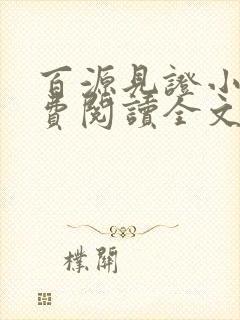 百源見證小
費閱讀全文
樸開